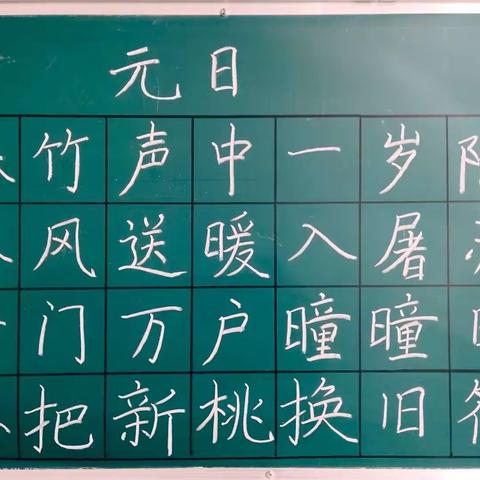 元日
竹声中一岁
风送暖入屠
门万户曈曈
把新桃换旧